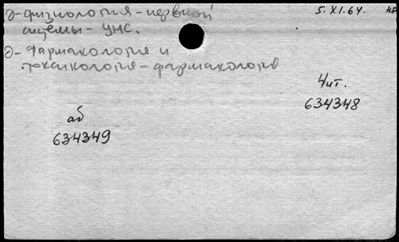 д-физиология-нервной 5.XI.64.
системы-ЦНС.
д-фармакология и
токсикология-фармакология
Чит.
634348
аб
634349